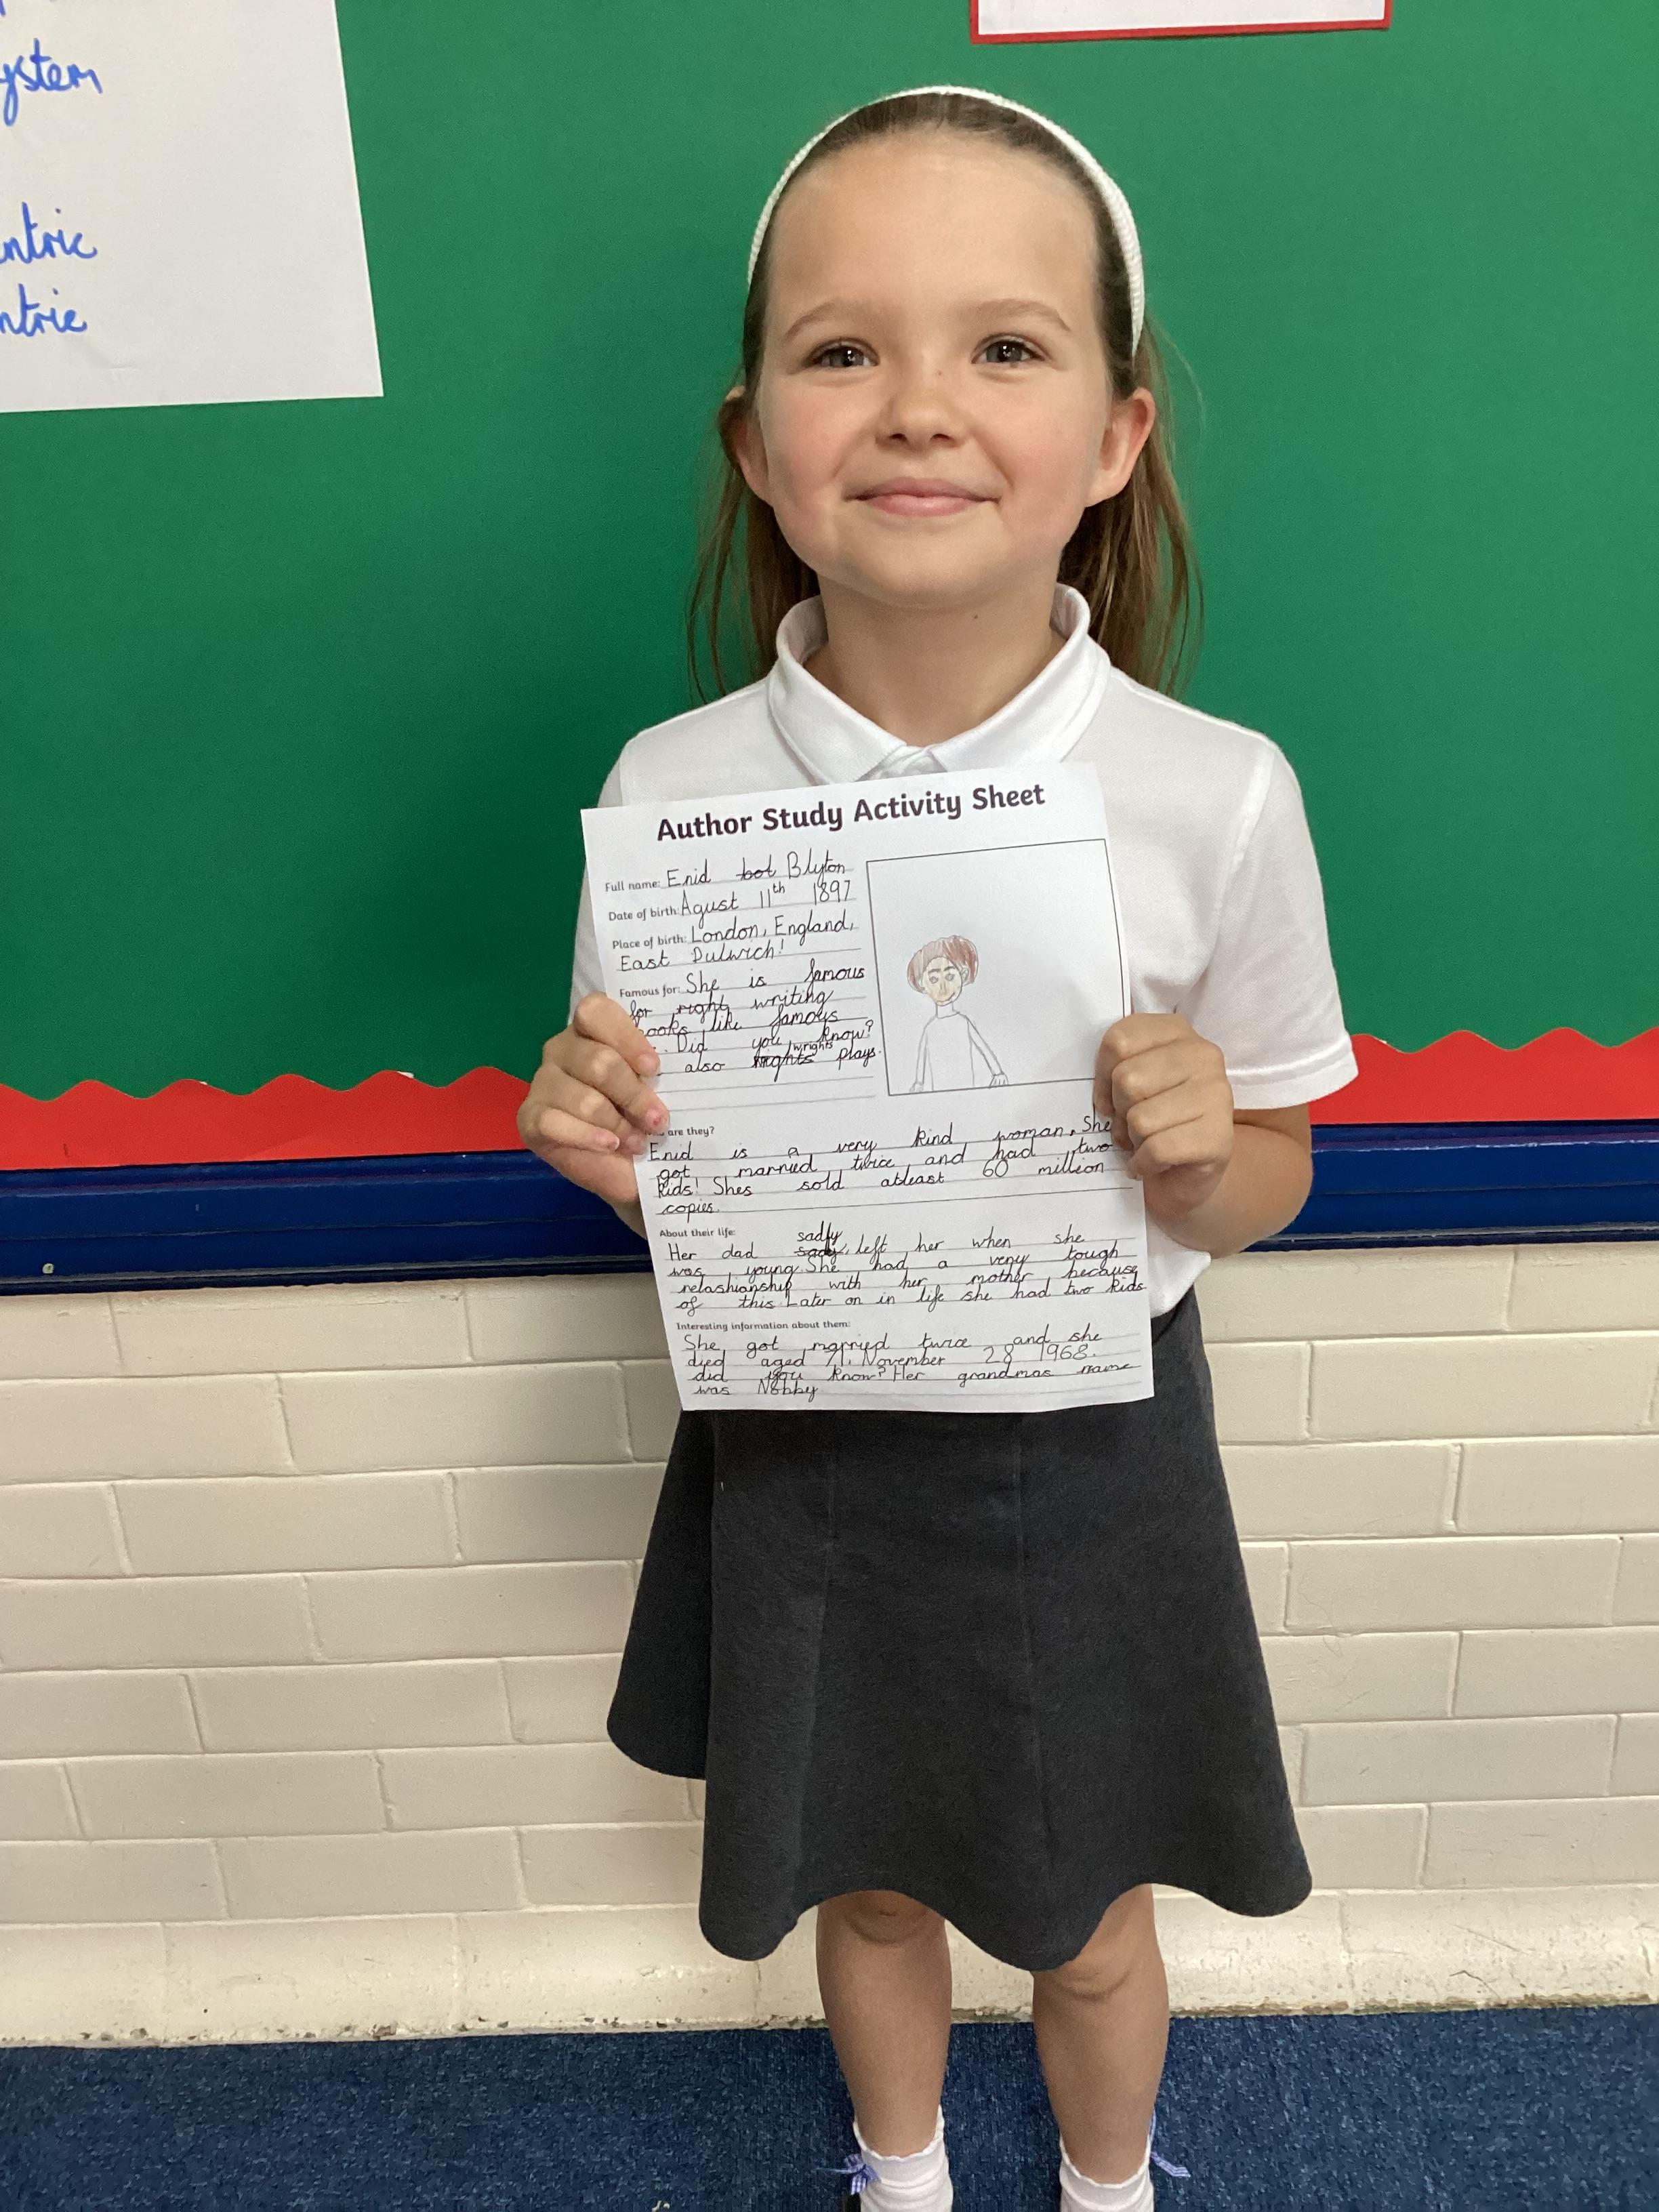 ystem
ntric
ntric
Author Study Activity Sheet
Full name: Enid bot Blyton
Date of birth: Agust 11th 1897
Place of birth: London, England,
East Dulwich!
Famous for: She is famous
for right writing
books like famous
. Did you know?
wrights
also plays.
are they?
Enid is a very kind woman. She
got married twice and had two
kids! Shes sold atleast 60 million
copies.
About their life: sadly
Her dad sady, left her when she
was young. She had a very tough
relashionship with her mother because
of this. Later on in life she had two kids
Interesting information about them:
She got married twice and she
died aged 71. November 28 1968.
did you know? Her grandmas name
was Nobby